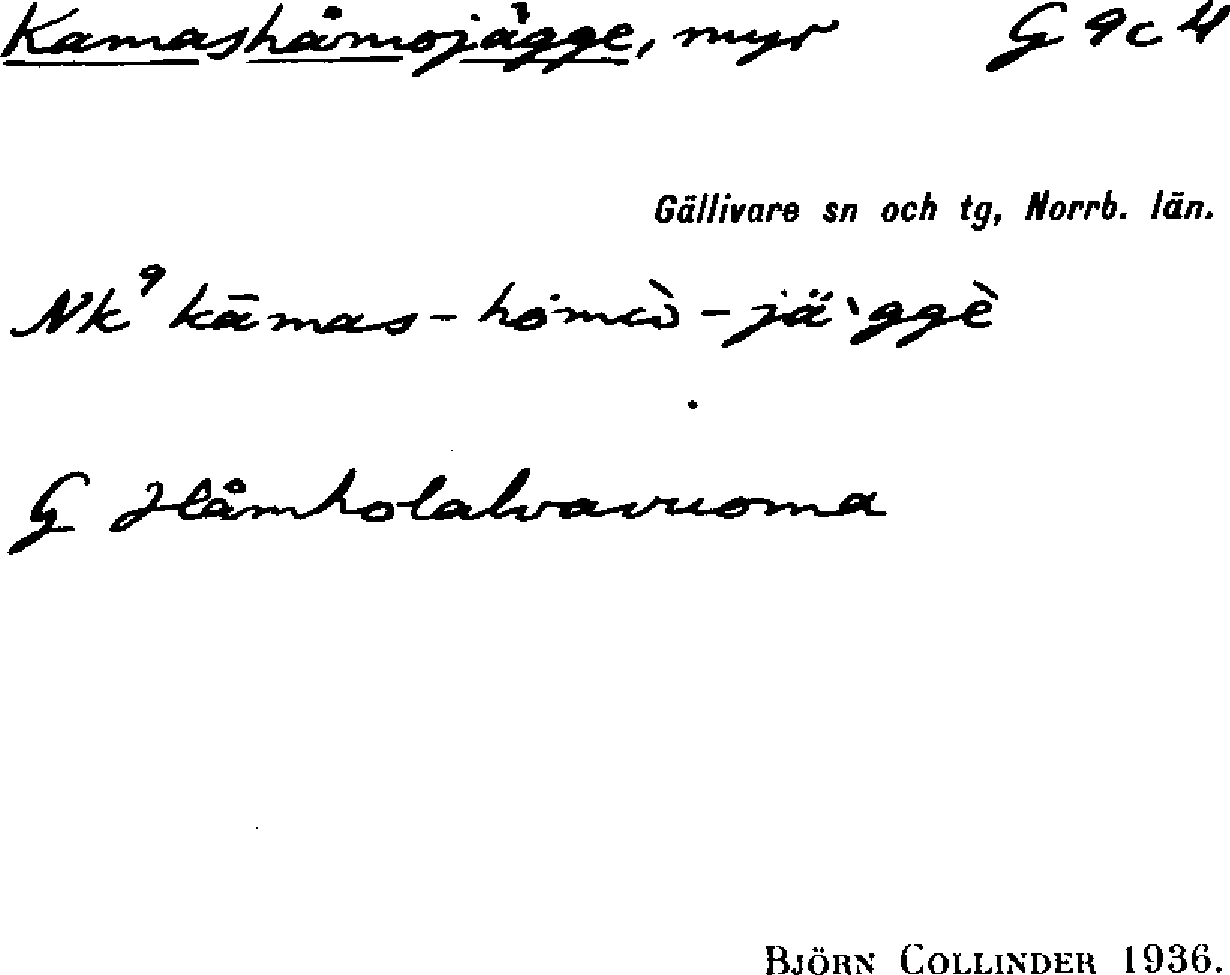 Kamashåmojägge, myr G 9c4
Gällivare sn och tg, Norrb. län.
Nk⁹ kāmas-håmɯ̀-jä`ggè
G Håmholalvavuoma
BJÖRN COLLINDER 1936.